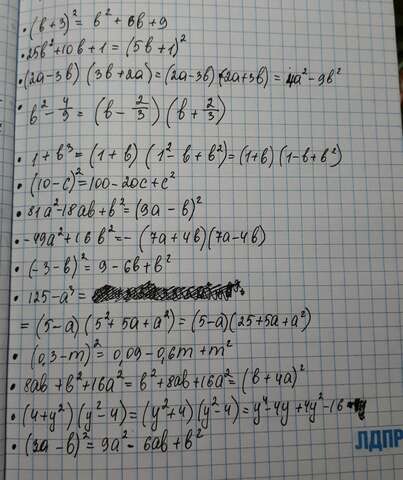 • (b+3)² = b² + 6b + 9
• 25b² + 10b + 1 = (5b+1)²
• (2a-3b) (3b+2a) = (2a-3b) (2a+3b) = 4a² - 9b²
• b² - 4/9 = (b - 2/3) (b + 2/3)
• 1 + b³ = (1+b) (1² - b + b²) = (1+b) (1-b+b²)
• (10-c)² = 100 - 20c + c²
• 81a² - 18ab + b² = (9a - b)²
• -49a² + 16b² = - (7a+4b) (7a-4b)
• (-3-b)² = 9 - 6b + b²
• 125 - a³ =
= (5-a) (5² + 5a + a²) = (5-a) (25+5a+a²)
• (0,3-m)² = 0,09 - 0,6m + m²
• 8ab + b² + 16a² = b² + 8ab + 16a² = (b + 4a)²
• (4+y²) (y²-4) = (y²+4) (y²-4) = y⁴ - 4y + 4y² - 16
• (3a - b)² = 9a² - 6ab + b²
ЛДПР